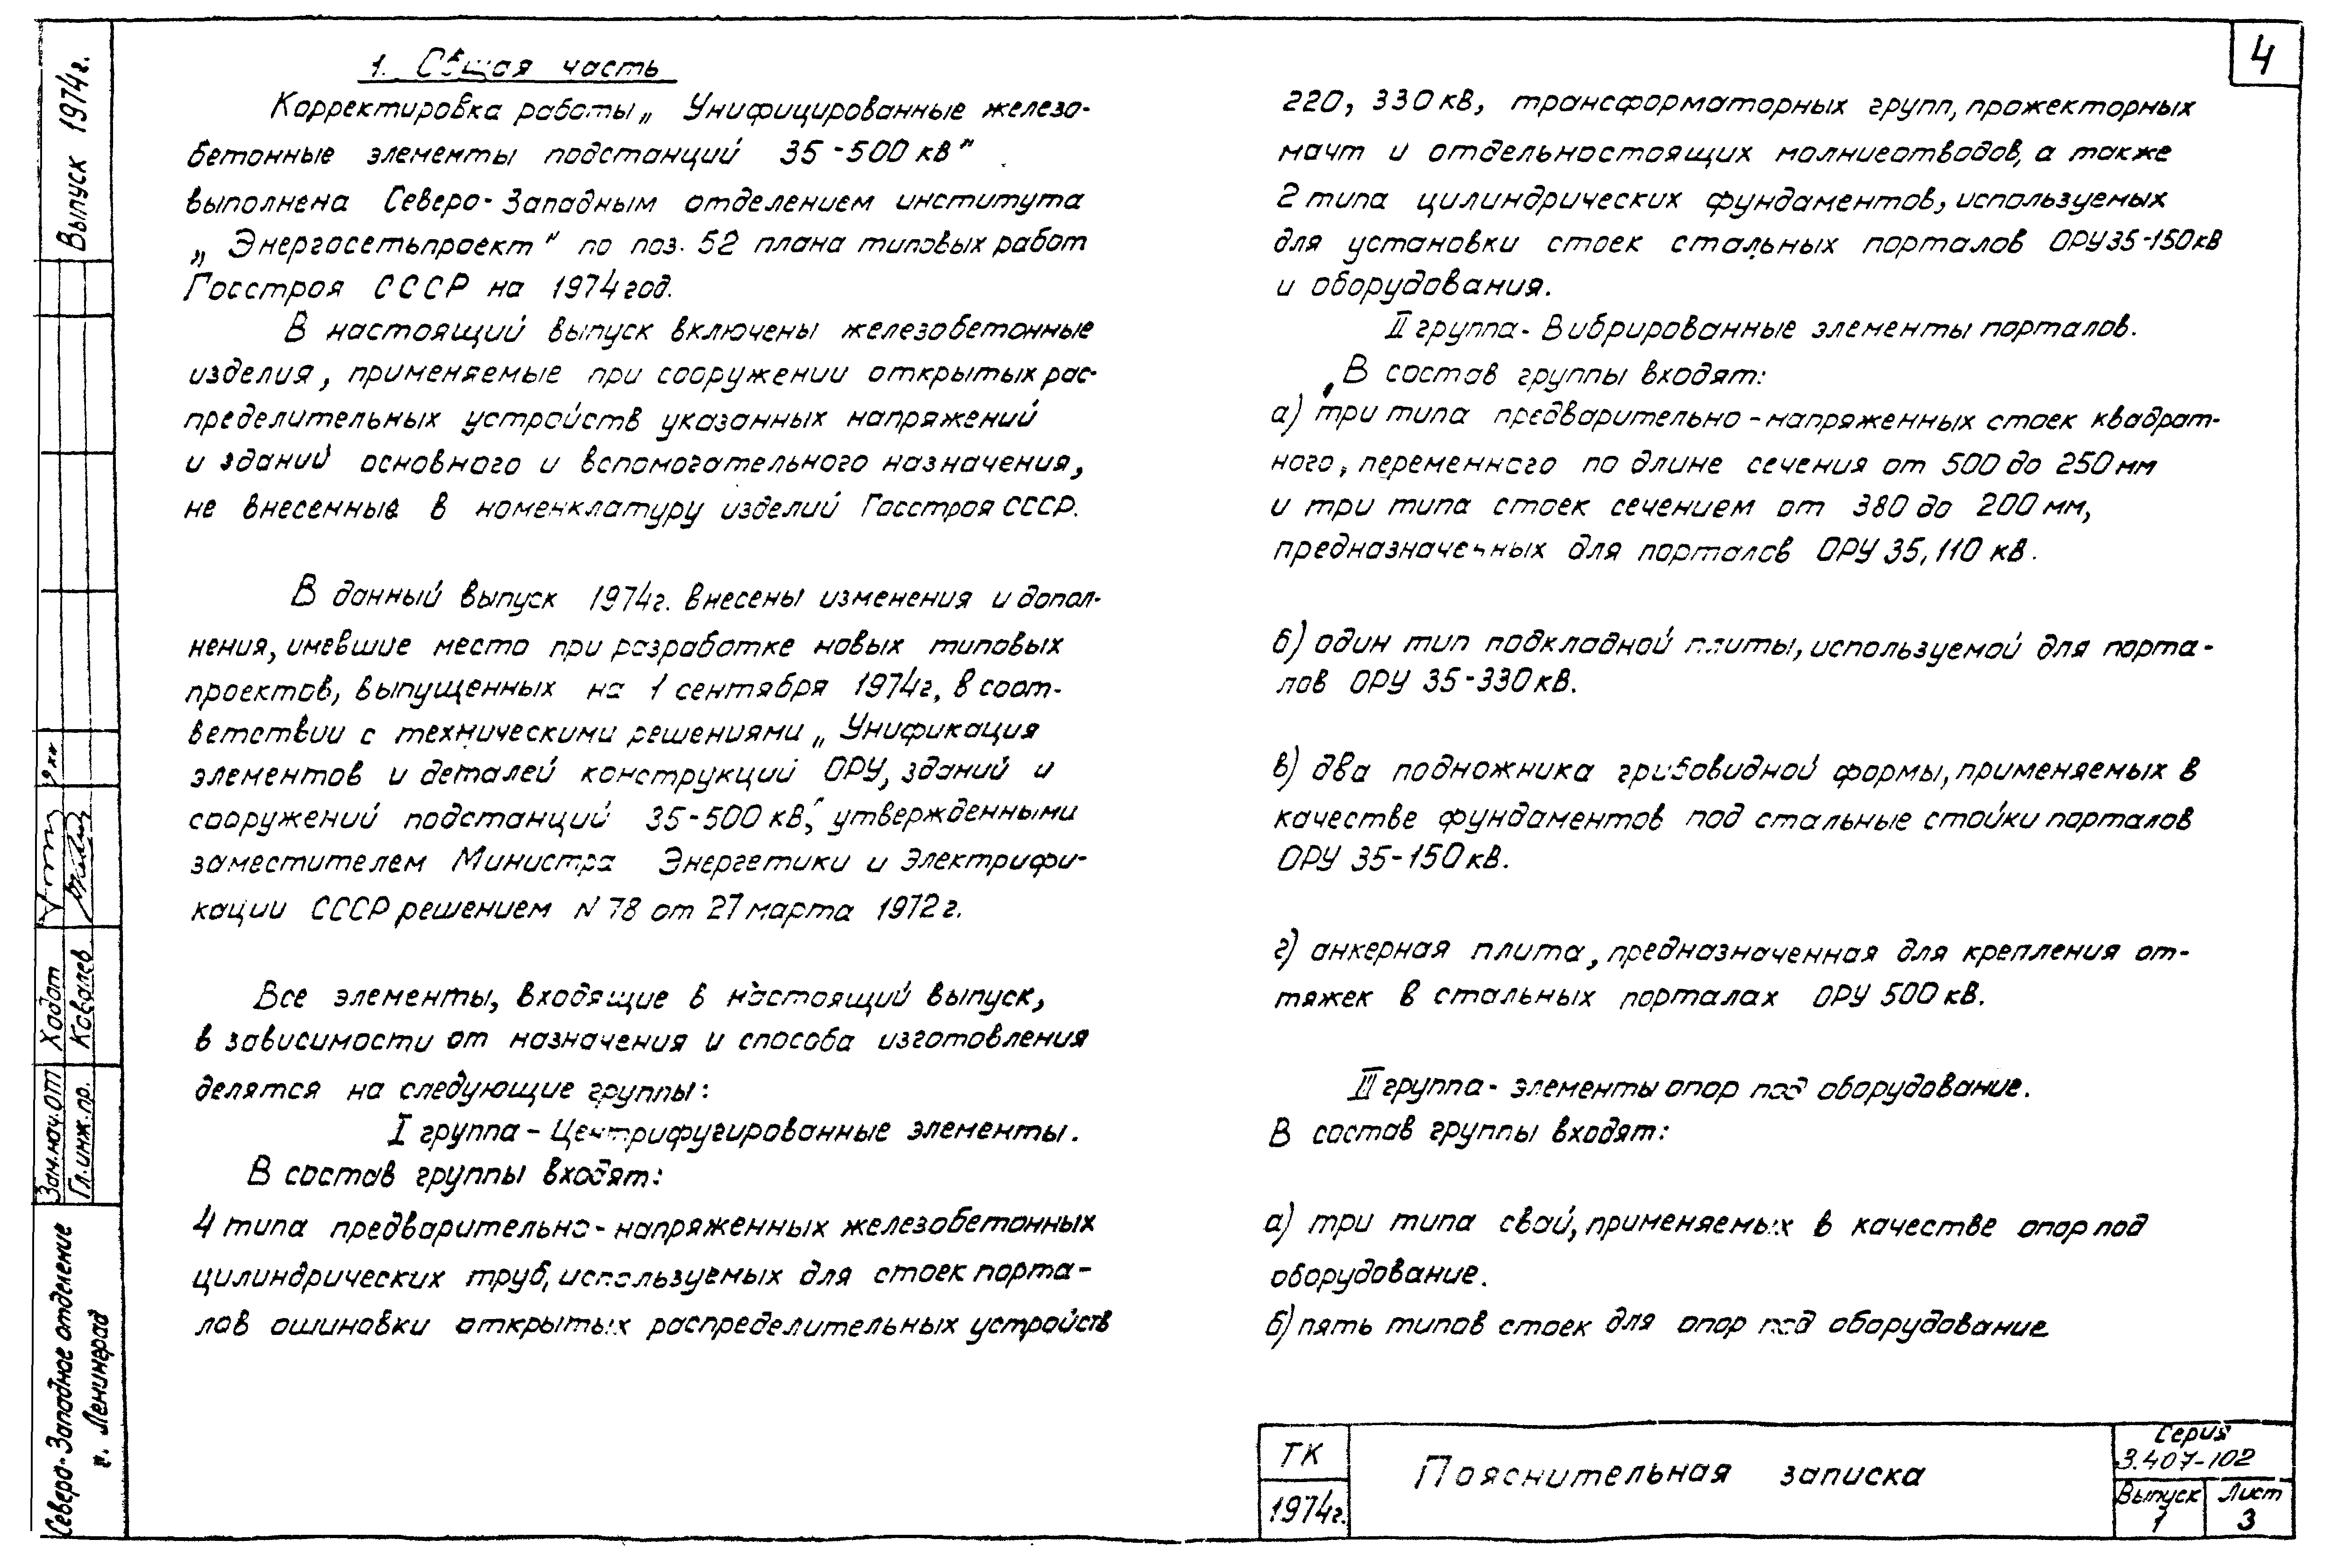 4
1. Общая часть
Корректировка работы „ Унифицированные железо-
бетонные элементы подстанций 35-500 кв"
выполнена Северо-Западным отделением института
„ Энергосетьпроект" по поз. 52 плана типовых работ
Госстроя СССР на 1974 год.
В настоящий выпуск включены железобетонные
изделия, применяемые при сооружении открытых рас-
пределительных устройств указанных напряжений
и зданий основного и вспомогательного назначения,
не внесенные в номенклатуру изделий Госстроя СССР.
В данный выпуск 1974г. внесены изменения и допол-
нения, имевшие место при разработке новых типовых
проектов, выпущенных на 1 сентября 1974г, в соот-
ветствии с техническими решениями „ Унификация
элементов и деталей конструкций ОРУ, зданий и
сооружений подстанций 35-500 кВ", утвержденными
заместителем Министра Энергетики и Электрифи-
кации СССР решением N 78 от 27 марта 1972 г.
Все элементы, входящие в настоящий выпуск,
в зависимости от назначения и способа изготовления
делятся на следующие группы:
I группа - Центрифугированные элементы.
В состав группы входят:
4 типа предварительно-напряженных железобетонных
цилиндрических труб, используемых для стоек порта-
лов ошиновки открытых распределительных устройств
220, 330 кВ, трансформаторных групп, прожекторных
мачт и отдельностоящих молниеотводов, а также
2 типа цилиндрических фундаментов, используемых
для установки стоек стальных порталов ОРУ 35-150 кВ
и оборудования.
II группа - Вибрированные элементы порталов.
В состав группы входят:
а) три типа предварительно-напряженных стоек квадрат-
ного, переменного по длине сечения от 500 до 250 мм
и три типа стоек сечением от 380 до 200 мм,
предназначенных для порталов ОРУ 35, 110 кВ.
б) один тип подкладной плиты, используемой для порта-
лов ОРУ 35-330 кВ.
в) два подножника грибовидной формы, применяемых в
качестве фундаментов под стальные стойки порталов
ОРУ 35-150 кВ.
г) анкерная плита, предназначенная для крепления от-
тяжек в стальных порталах ОРУ 500 кВ.
III группа - элементы опор под оборудование.
В состав группы входят:
а) три типа свай, применяемых в качестве опор под
оборудование.
б) пять типов стоек для опор под оборудование
Выпуск 1974г.
Зам.нач.ОТП Ходот
Гл.инж.пр. Ковалев
Северо-Западное отделение
г. Ленинград
ТК
1974г.
Пояснительная записка
Серия
3.407-102
Выпуск
1
Лист
3